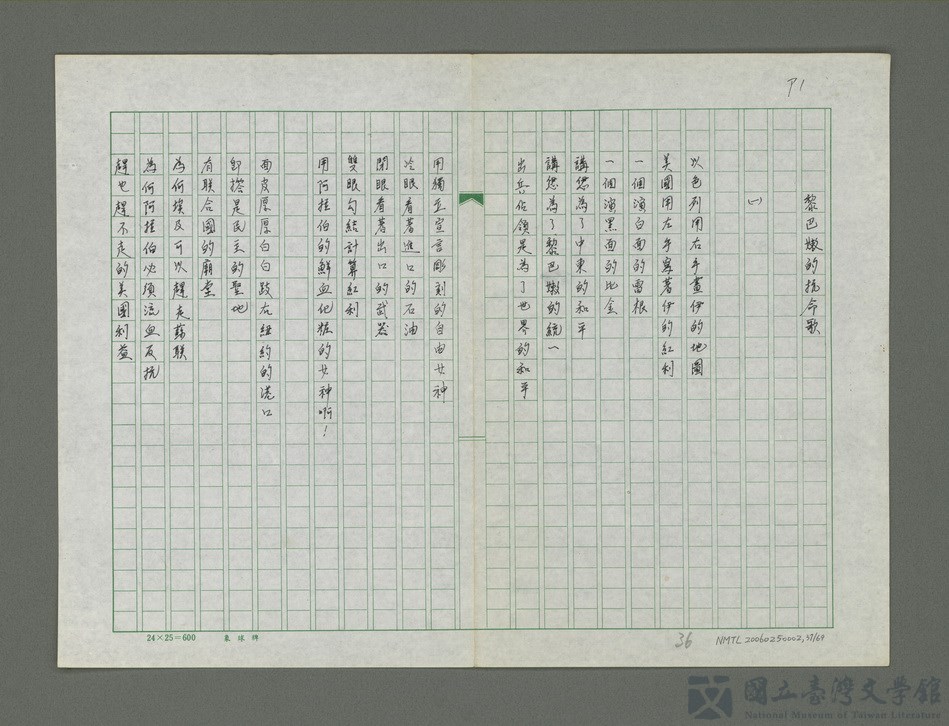 P1
黎巴嫩的抗命歌
(一)
以色列用右手畫伊的地圖
美國用左手寫著伊的紅利
一個演白面的雷根
一個演黑面的比金
講怹為了中東的和平
講怹為了黎巴嫩的統一
出兵佔領是為了世界的和平
用獨立宣言彫刻的自由女神
冷眼看著進口的石油
閉眼看著出口的武器
雙眼勾結計算紅利
用阿拉伯的鮮血化粧的女神啊!
面皮厚厚白白跂在紐約的港口
是民主的聖地
有联合國的廟堂
為何埃及可以趕走蘇联
為何阿拉伯必須流血反抗
趕也趕不走的美國利益
24×25=600
36
NMTL 20060250002,37/69
國立臺灣文學館
National Museum of Taiwan Literature